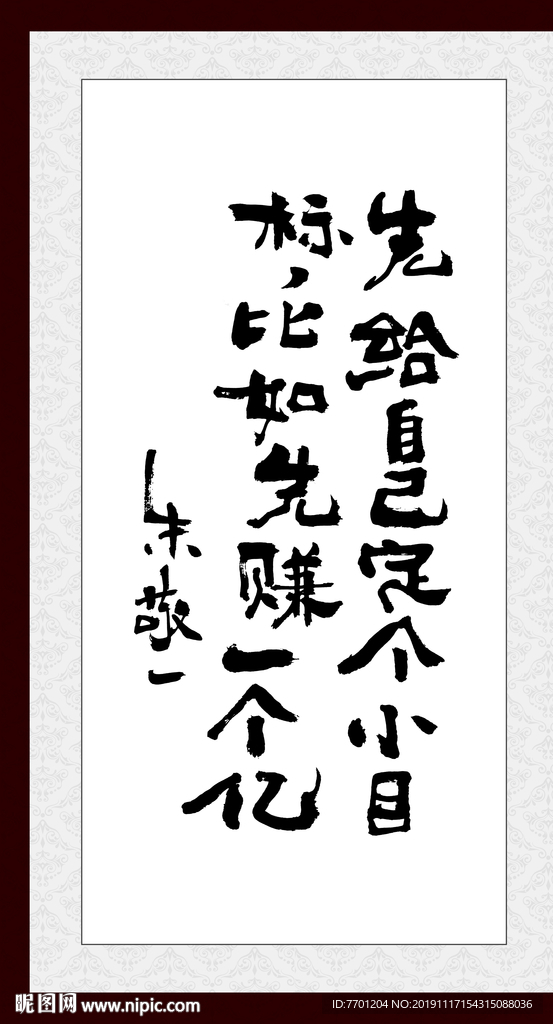 先给自己定个小目
标，比如先赚一个亿
朱敬一
昵图网 www.nipic.com
ID:7701204 NO:20191117154315088036